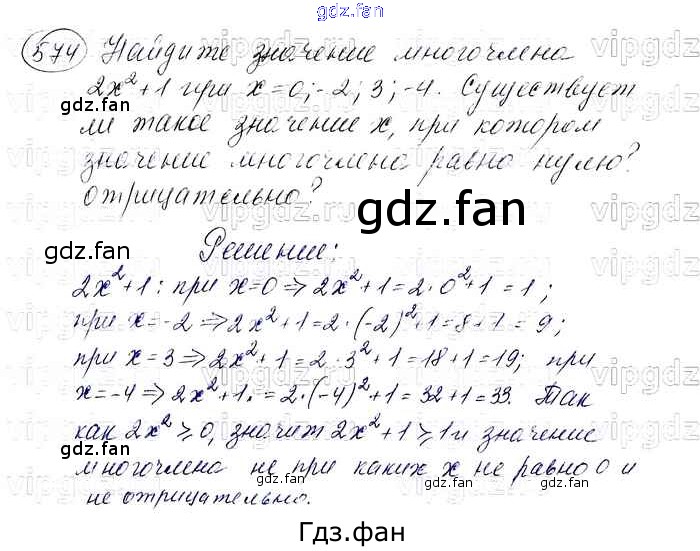 gdz.fan
574 Найдите значение многочлена
2x²+1 при x=0;-2;3;-4. Существует
ли такое значение x, при котором
значение многочлена равно нулю?
отрицательно?
gdz.fan
gdz.fan
gdz.fan
gdz.fan
Решение:
2x²+1: при x=0⇒2x²+1=2·0²+1=1;
при x=-2⇒2x²+1=2·(-2)²+1=8+1=9;
при x=3⇒2x²+1=2·3²+1=18+1=19; при
x=-4⇒2x²+1.=2·(-4)²+1=32+1=33. Так
как 2x²≥0, значит 2x²+1≥1 и значение
многочлена не при каких x не равно 0 и
не отрицательно.
gdz.fan
gdz.fan
gdz.fan
Гдз.фан